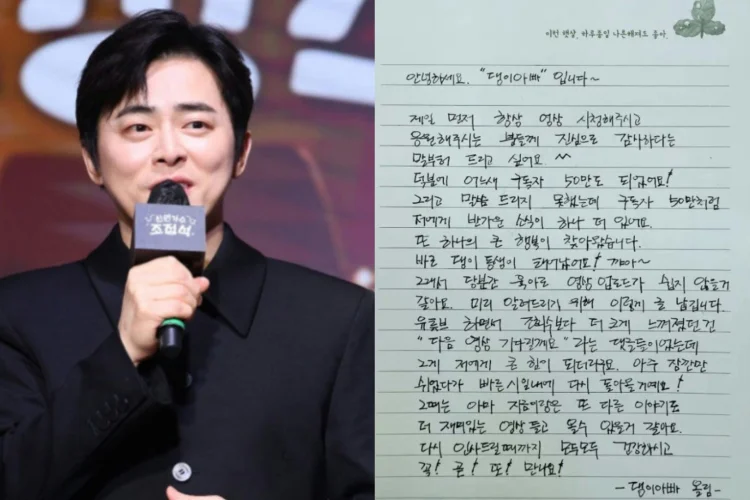 신인가수
조정석
이런 햇살, 하루종일 나른해져도 좋아.
안녕하세요. "댕이아빠" 입니다~
제일 먼저 항상 영상 시청해주시고
응원해주시는 분들께 진심으로 감사하다는
말부터 드리고 싶어요 ^^
덕분에 어느새 구독자 50만도 되었어요!
그리고 말씀 드리지 못했는데 구독자 50만처럼
저에게 반가운 소식이 하나 더 있어요.
또 하나의 큰 행복이 찾아왔습니다.
바로 댕이 동생이 태어났어요! 꺄아~
그래서 당분간 육아로 영상 업로드가 쉽지 않을거
같아요. 미리 알려드리기 위해 이렇게 글 남깁니다.
유튜브 하면서 조회수보다 더 크게 느껴졌던건
"다음 영상 기다릴께요" 라는 댓글들이었는데
그게 저에게 큰 힘이 되더라구요. 아주 잠깐만
쉬었다가 빠른시일내에 다시 돌아올거예요!
그때는 아마 지금이랑은 또 다른 이야기로
더 재미있는 영상 들고 올수 있을거 같아요.
다시 인사드릴때까지 모두모두 건강하시고
꼭! 곧! 또! 만나요!
- 댕이아빠 올림 -